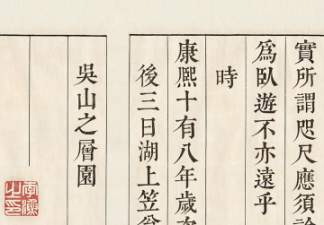 實所謂咫尺應須論
為臥遊不亦遠乎
時
康熙十有八年歲次
後三日湖上笠翁
吳山之層園